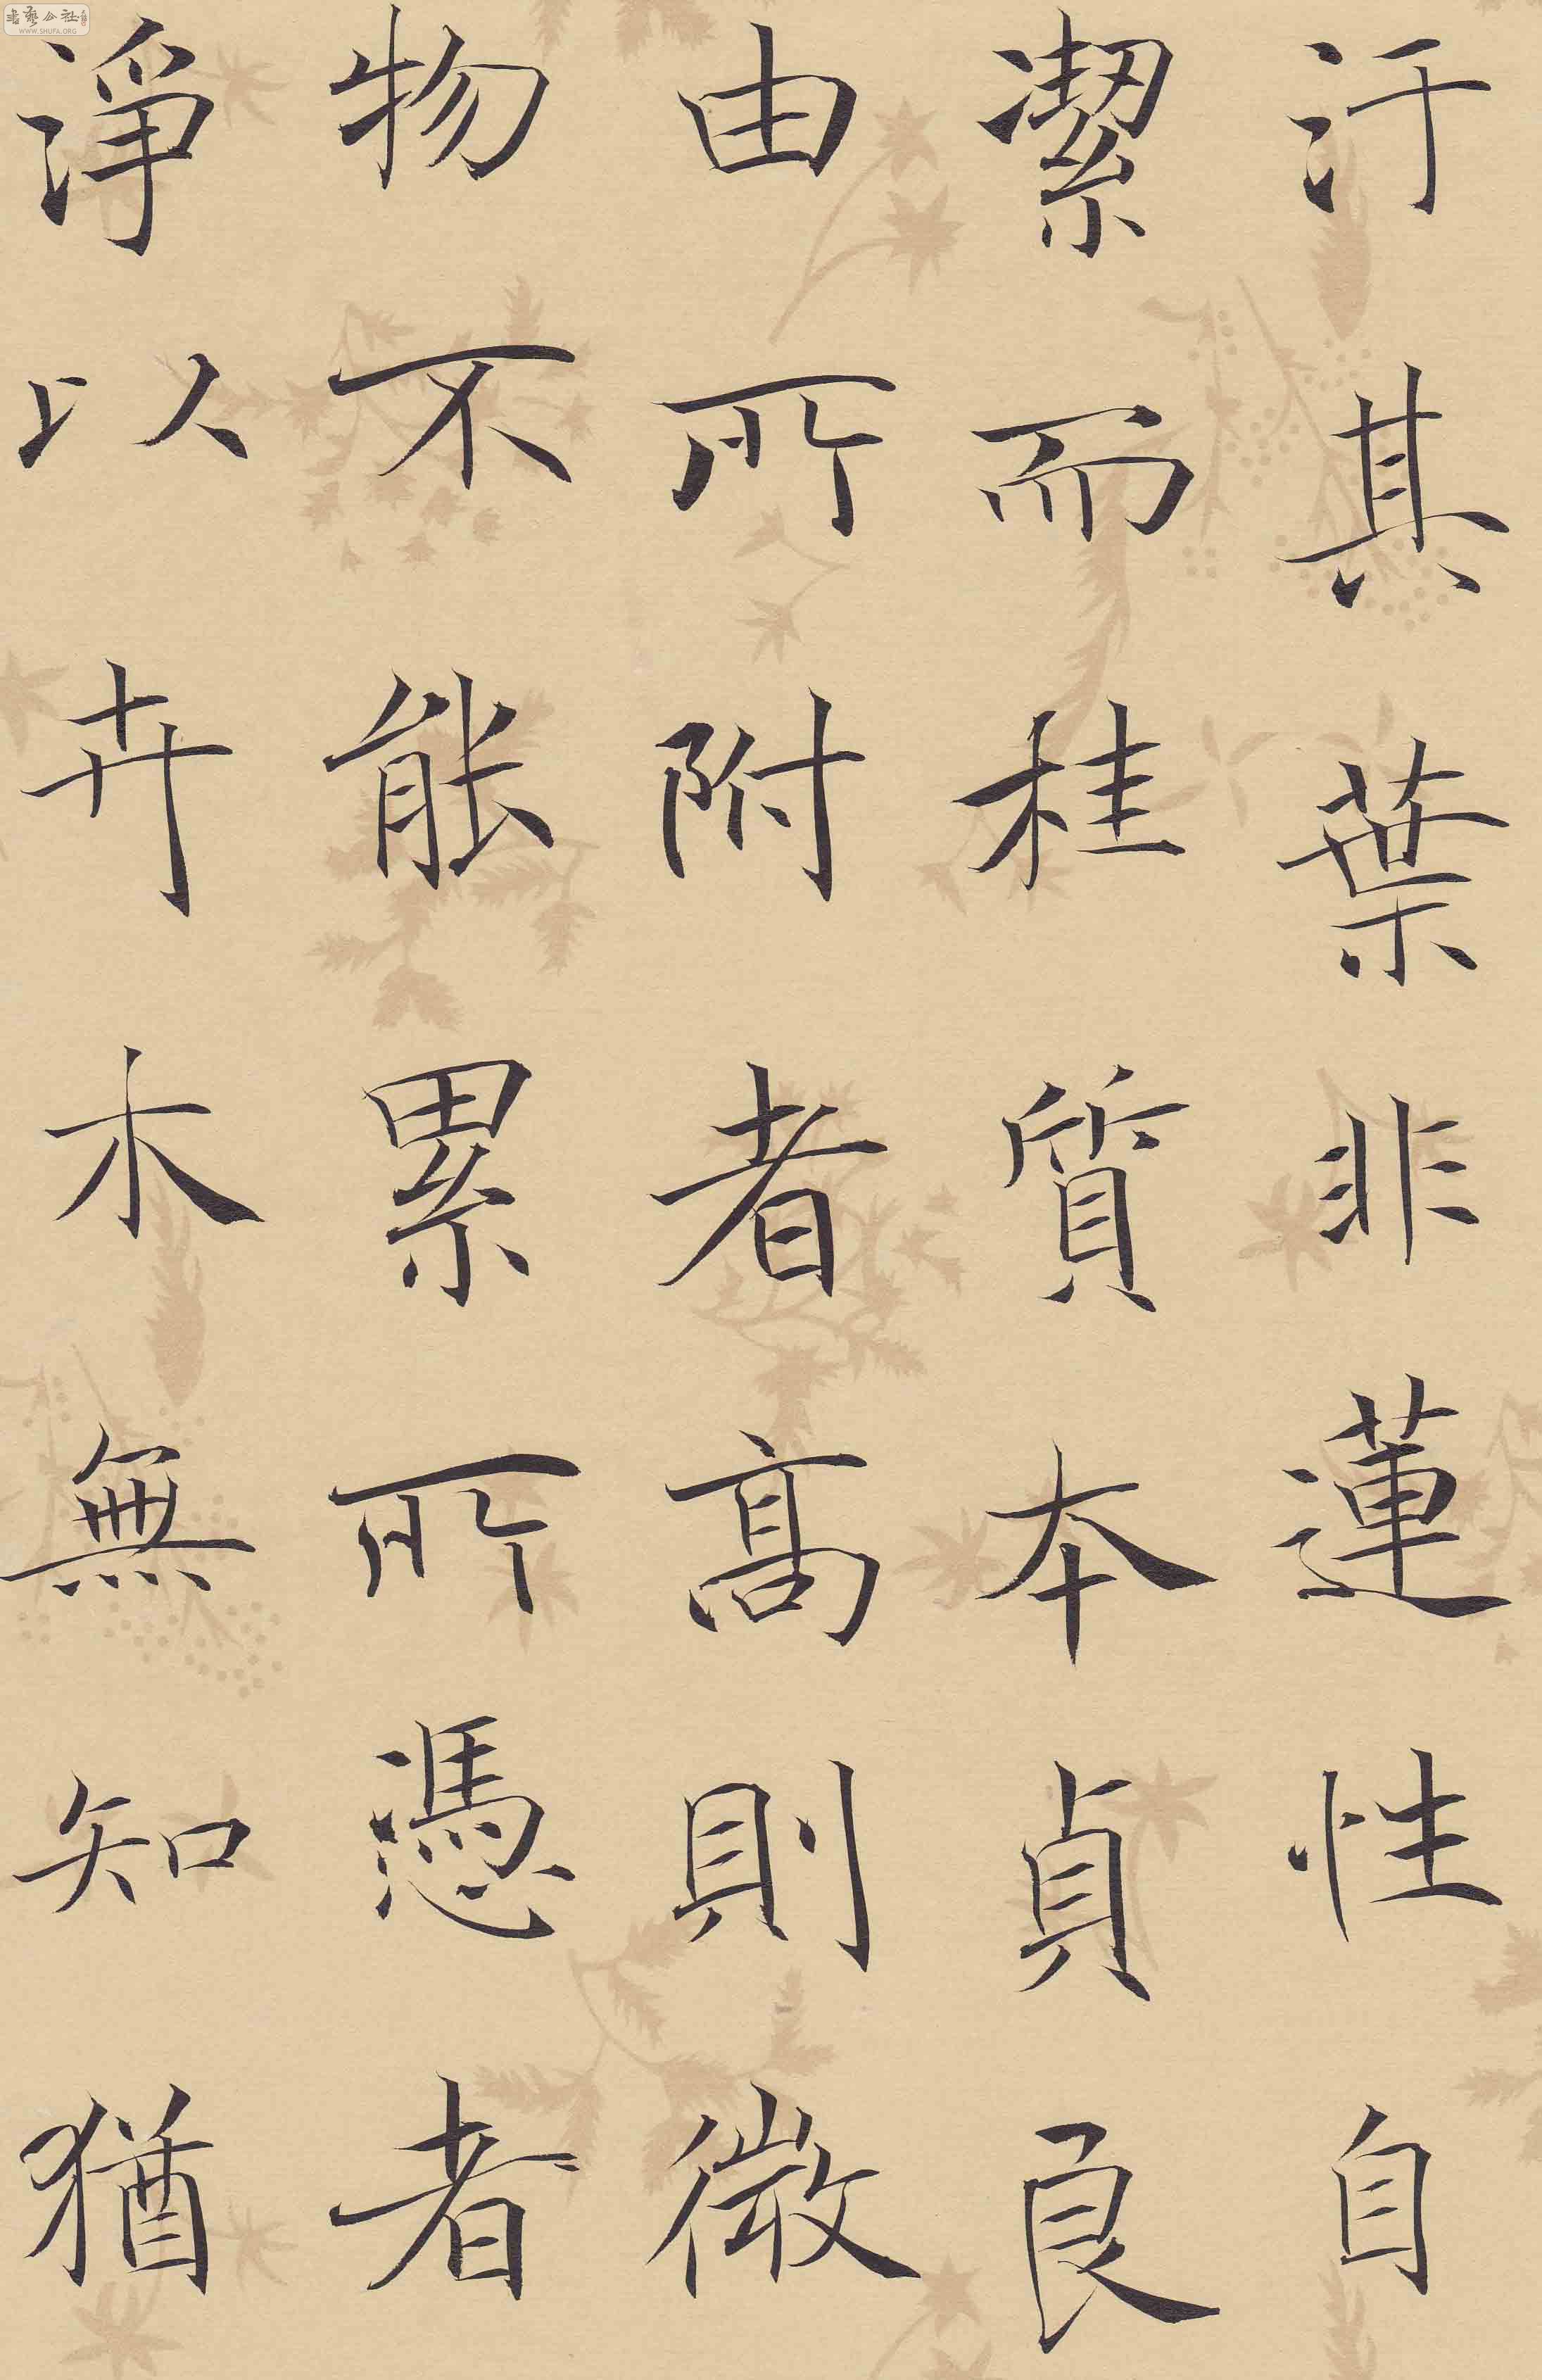 汙其葉非蓮性自
潔而桂質本貞良
由所附者高則微
物不能累所憑者
淨以卉木無知猶
書艺公社
WWW.SHUFA.ORG